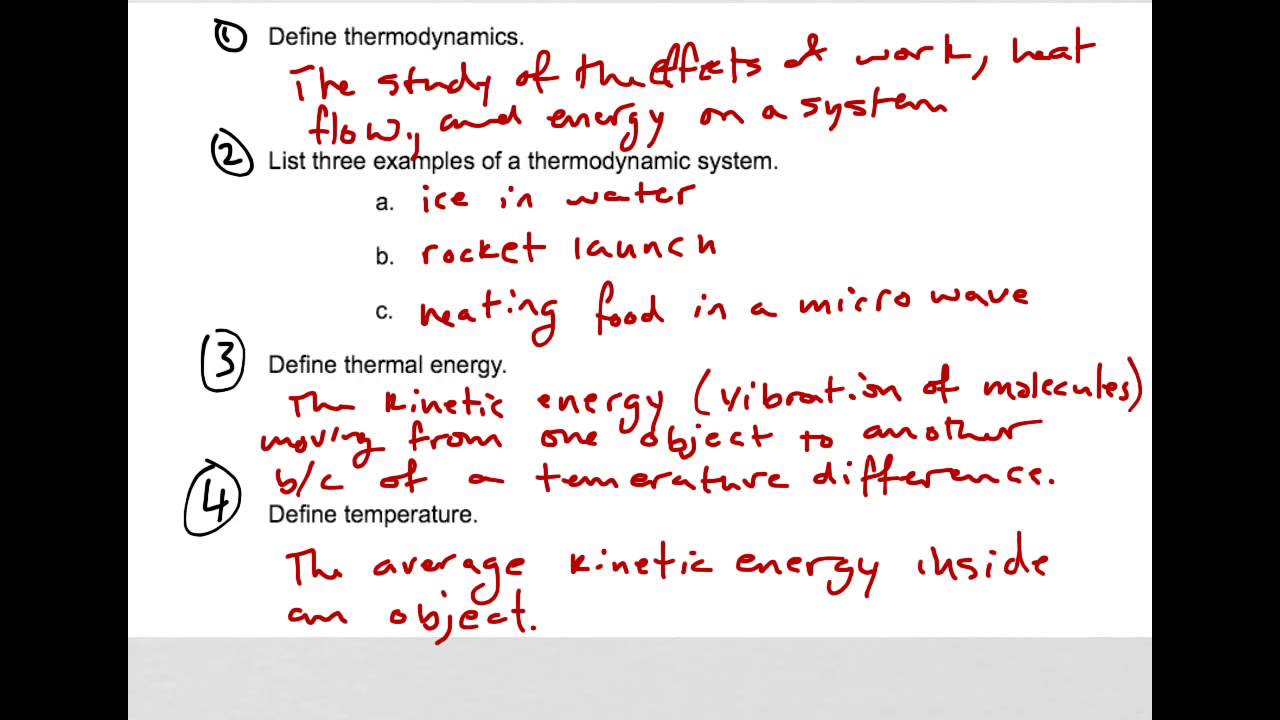 ① Define thermodynamics.
The study of the effects of work, heat
flow, and energy on a system
② List three examples of a thermodynamic system.
a. ice in water
b. rocket launch
c. heating food in a microwave
③ Define thermal energy.
The kinetic energy (vibration of molecules)
moving from one object to another
b/c of a temerature difference.
④ Define temperature.
The average kinetic energy inside
an object.